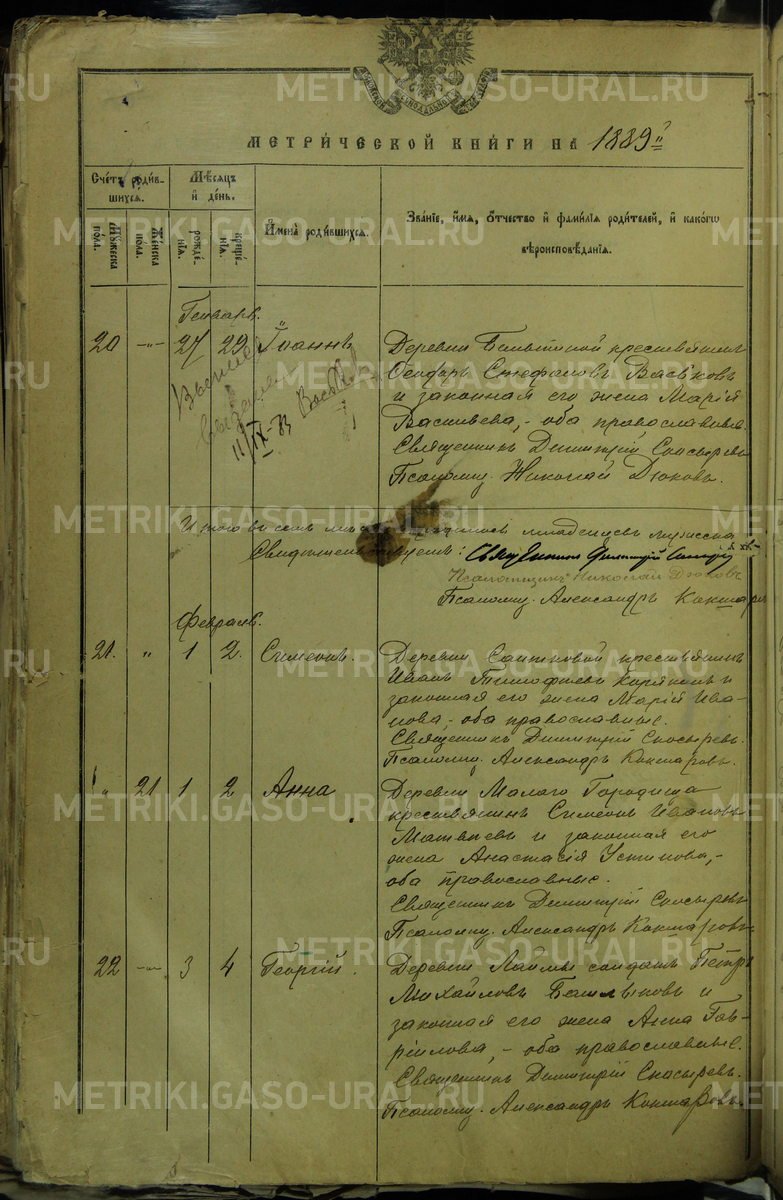 МЕТРИ́ЧЕСКОЙ КНИ́ГИ НА 1889 й
Сче́тъ роди́в-
шихся.
Мꙋ́жеска по́ла.
Же́нска по́ла.
Мѣ́сяцъ
и҆ де́нь.
рожде́-
нїя.
креще́-
нїя.
И҆мена̀ роди́вшихся.
Зва́нїе, и҆́мя, ѻ҆́тчество и҆ фами́лїя роди́телей, и҆ како́гѡ
вѣроисповѣ́данїя.
Генварь.
20 -"- 27 29 Іоаннъ
Деревни крестьянинъ
Ѳеодоръ Стефановъ Васьковъ
и законная его жена Марія
Васильева, - оба православные.
Священникъ Димитрій Снасыревъ
Псаломщ. Николай Дюковъ.
11/IX-83
Итого въ младенцевъ мужеска
Священникъ Димитрій
Псаломщикъ Николай Дюковъ
Псаломщ. Александръ Кокшаровъ
Февраль.
21. " 1 2. Симеонъ.
Деревни крестьянинъ
Иванъ Тимофеевъ Корякинъ и
законная его жена Марія Ива-
нова, - оба православные.
Священникъ Димитрій Снасыревъ.
Псаломщ. Александръ Кокшаровъ.
" 21 1 2 Анна
Деревни Малаго Городища
крестьянинъ Симеонъ Ивановъ
Матвѣевъ и законная его
жена Анастасія Устинова, -
оба православные.
Священникъ Димитрій Снасыревъ
Псаломщ. Александръ Кокшаровъ.
22 -"- 3 4 Георгій.
Деревни Лаймы солдатъ Петръ
Михайловъ и
законная его жена Анна Гав-
ріилова, - оба православные.
Священникъ Димитрій Снасыревъ.
Псаломщ. Александръ Кокшаровъ.
METRIKI.GASO-URAL.RU